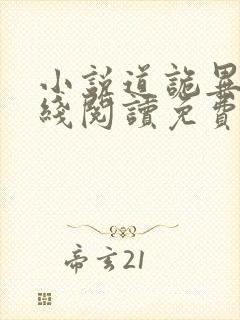 小说道詭異
綫閱讀免費
帝玄21